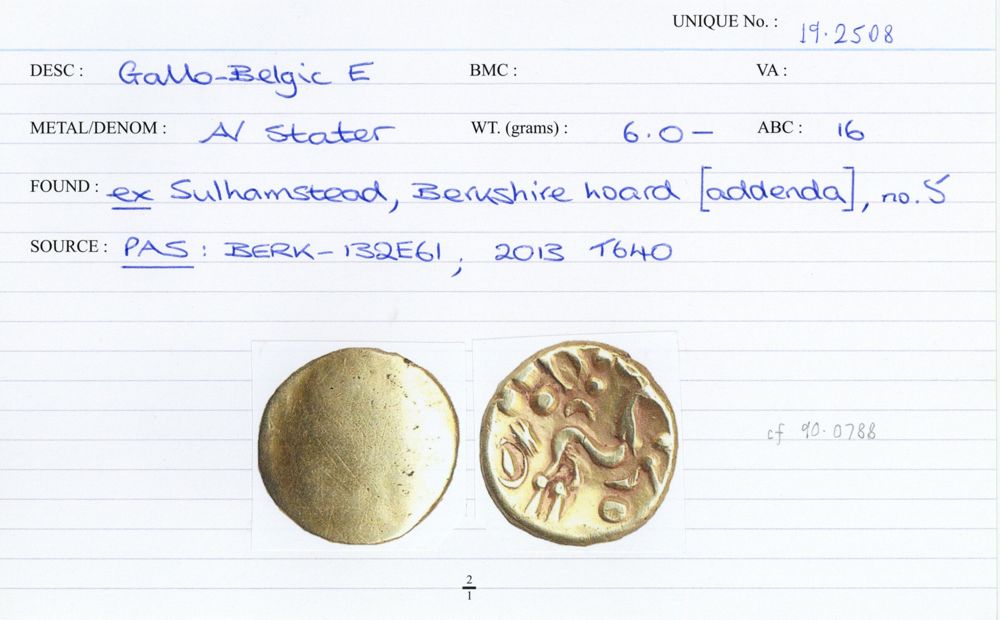 UNIQUE No. : 19.2508
DESC : Gallo-Belgic E BMC : VA :
METAL/DENOM : AV Stater WT. (grams) : 6.0— ABC : 16
FOUND : ex Sulhamstead, Berkshire hoard [addenda], no. 5
SOURCE : PAS : BERK-132E61, 2013 T640
cf 90.0788
2
1